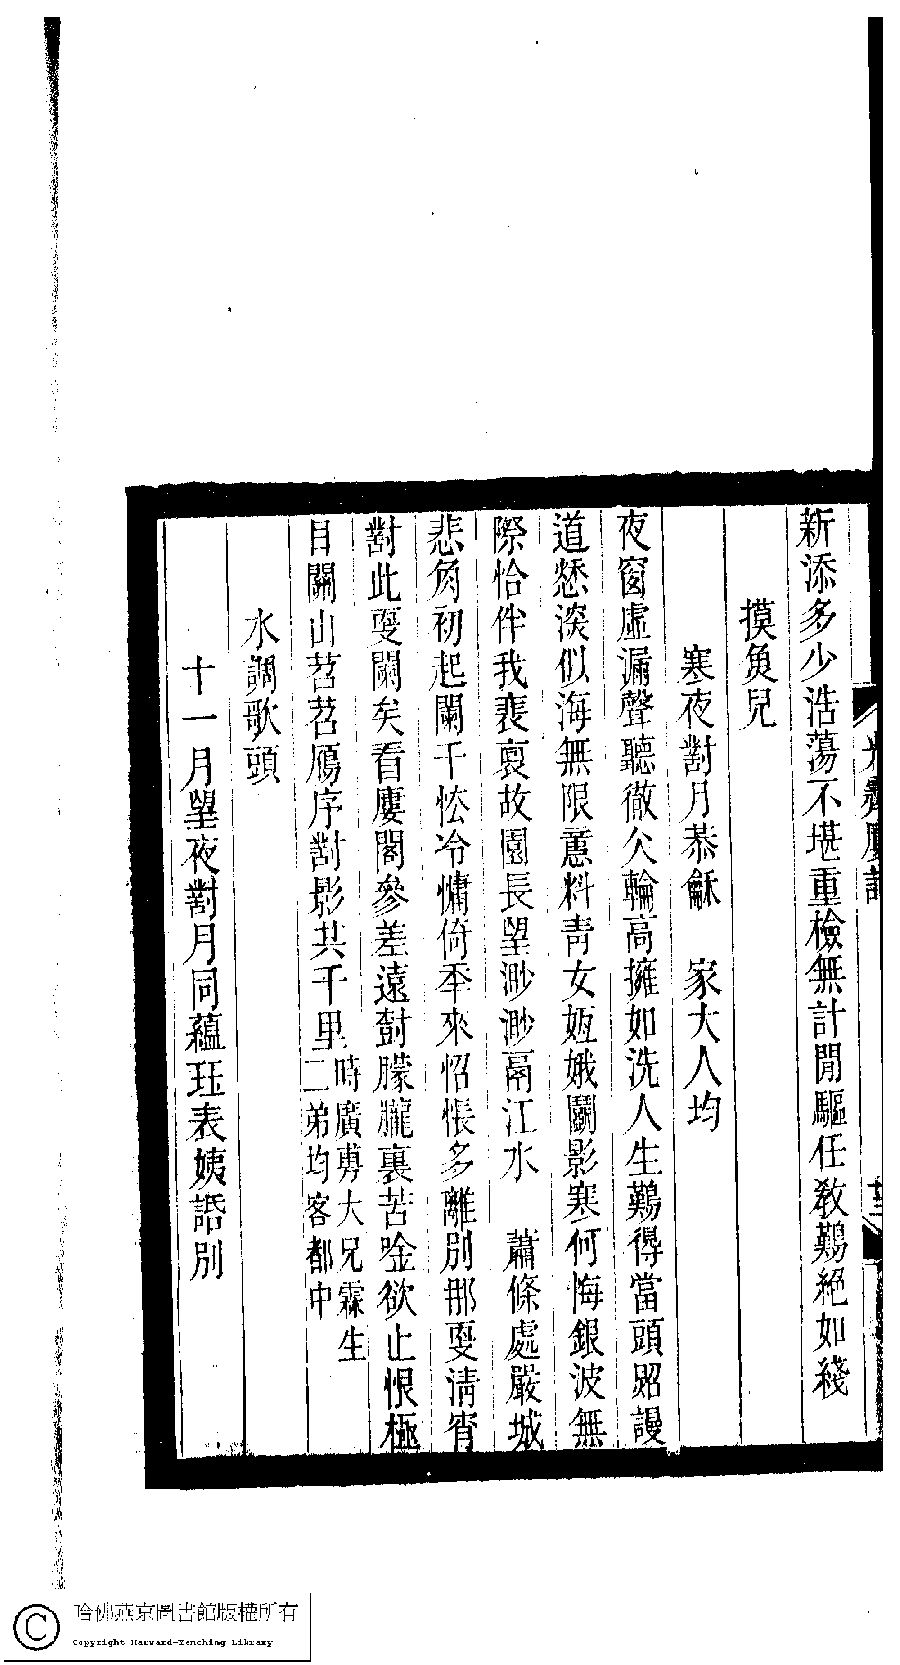 新添多少浩蕩不堪重檢無計閒驅任敎鷬絕如綫
摸魚兒
寒夜對月恭龢　家大人均
夜窗虛漏聲聽徹仌輪高擁如洗人生鷬得當頭照謾
道愁深似海無限意料靑女姮娥鬭影寒何悔銀波無
際恰伴我裵裒故園長望渺渺鬲江水　蕭條處嚴城
悲角初起闌干恡冷慵倚年來怊悵多離別那更淸宵
對此更闌矣看廔閣參差遠樹朦朧裏苦唫欲止恨極
目關山苕苕鴈序對影共千里
時廣旉大兄霖生
二弟均客都中
水調歌頭
十一月望夜對月同蘊玨表姨話別
哈佛燕京圖書館版權所有
Copyright Harvard-Yenching Library